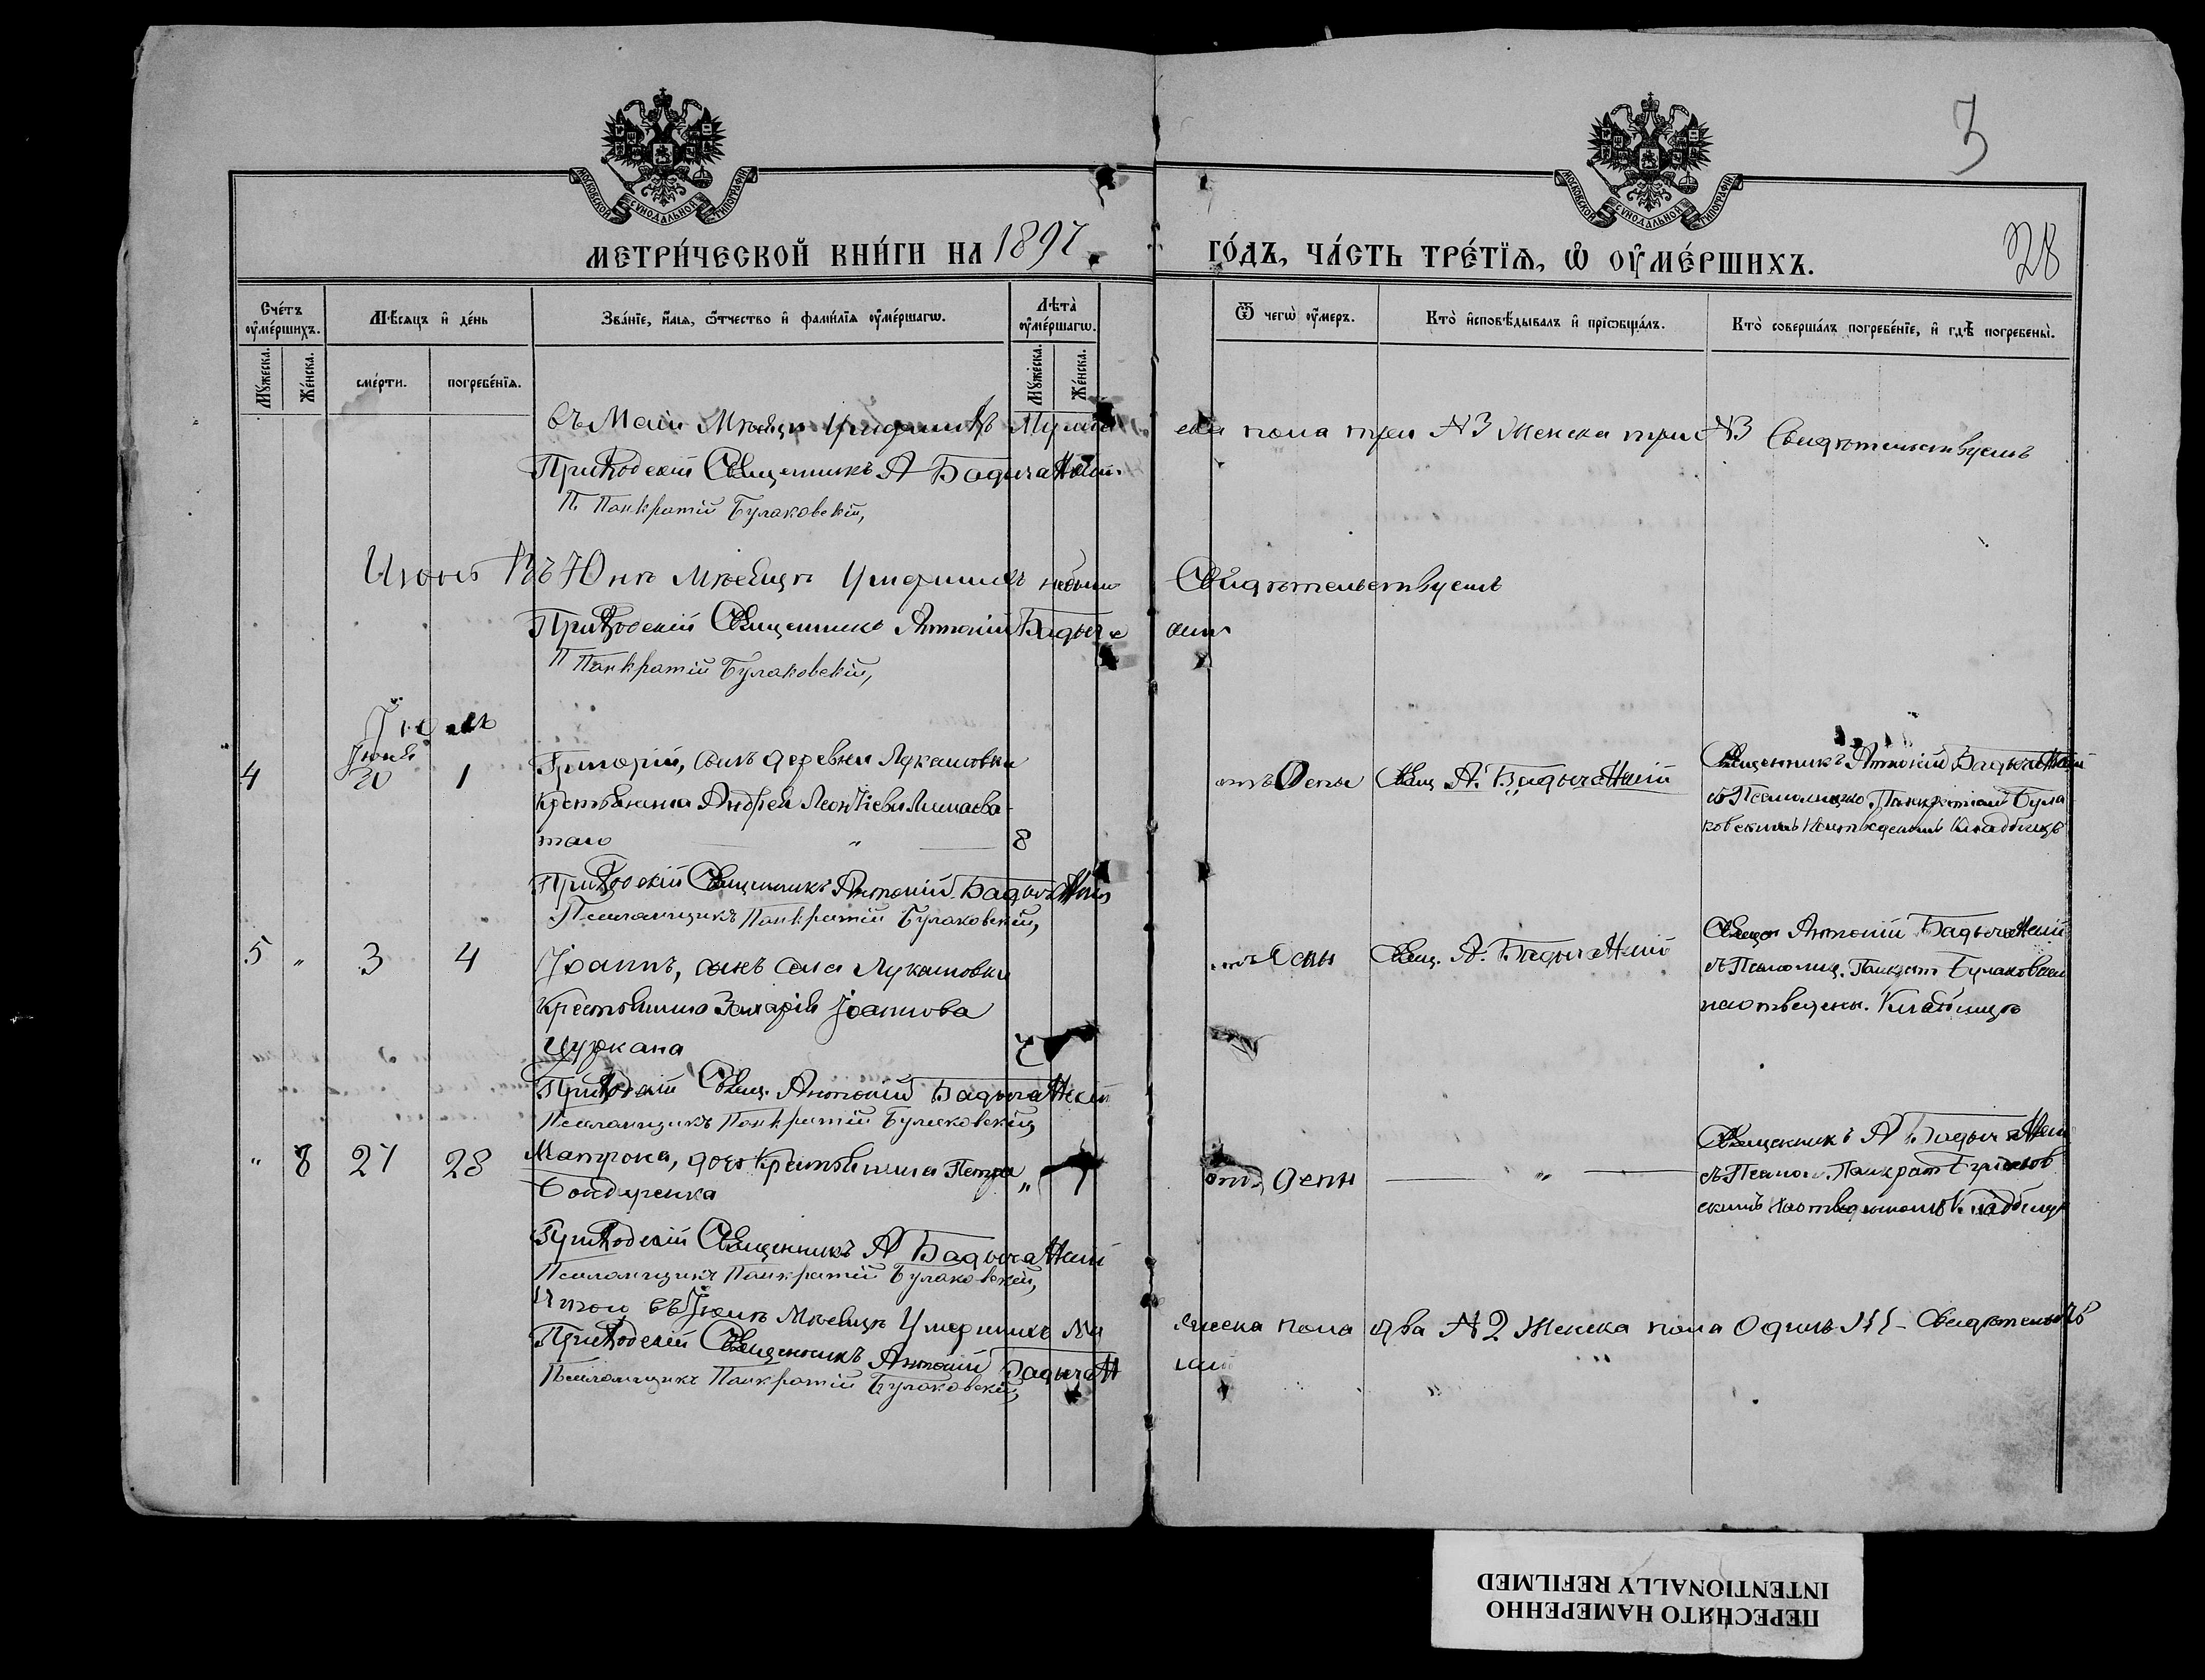 3
28
МОСКОВСКОЙ СѴНОДАЛЬНОЙ ТИПОГРАФІИ
МОСКОВСКОЙ СѴНОДАЛЬНОЙ ТИПОГРАФІИ
МЕТРИ́ЧЕСКОЙ КНИ́ГИ НА 1897 ГО́ДЪ, ЧА́СТЬ ТРЕ́ТЇѦ, Ѡ҆ ОУ҆МЕ́РШИХЪ.
Сче́тъ оу҆ме́ршихъ.
Мꙋ́жеска.
Же́нска.
Мѣ́сѧцъ и҆ де́нь
сме́рти.
погребе́нїѧ.
Зва́нїе, и҆́мѧ, ѻ҆́тчество и҆ фами́лїѧ оу҆ме́ршагѡ.
Лѣ̑та̀ оу҆ме́ршагѡ.
Мꙋ́жеска.
Же́нска.
Ѿ чегѡ̀ оу҆́меръ.
Кто̀ и҆сповѣ́дывалъ и҆ прїѡбща́лъ.
Кто̀ соверша́лъ погребе́нїе, и҆ гдѣ̀ погребены̀.
въ Маѣ Мѣсяцѣ Умершихъ Мужеска пола три №3 Женска три №3 Свидѣтельствуемъ
Приходскій Священникъ А Бадычаний
П. Панкратій Булаковскій,
Июнь Въ Юнѣ Мѣсяцѣ Умершихъ небыло Свидѣтельствуемъ
Приходскій Священникъ Антоній Бадыч
П Панкратій Булаковскій,
Іюль
4 Іюня 30 1 Григорій, сынъ деревни Лукашовки
Крестьянина Андрея Леонтіева
таго " 8
отъ Оспы Свящ А. Бадычаний
Священникъ Антоній Бадычаний
съ Псаломщико. Панкратіем Була
ковскимъ Кладбищѣ
Приходскій Священникъ Антоній Бадычаний
Псаломщикъ Панкратій Булаковскій,
5 " 3 4 Іоаннъ, сынъ села Лукашовки
Крестьянина Захарія Іоаннова
Цуркана 7
отъ Оспы Свящ. А. Бадычаний
Свящ Антоній Бадычаний
съ Псаломщ. Панкрат Булаковски
на отведенн. Кладбищѣ
Приходскій Свящ. Антоній Бадычаний
Псаломщикъ Панкратій Булаковскій,
" 8 27 28 Матрона, дочь Крестьянина Петра
Бондаренка "
отъ Оспы "
Священникъ А Бадычаний
съ Псалом. Панкрат Булаков
скимъ на отведенномъ Кладбищѣ
Приходскій Священникъ А Бадычаний
Псаломщикъ Панкратій Булаковскій,
Итого въ Іюлѣ Мѣсяцѣ Умершихъ Мужеска пола два №2 Женска пола Одинъ №1 -
Приходскій Священникъ Антоній Бадычаний
Псаломщикъ Панкратій Булаковскій,
ПЕРЕСНЯТО НАМЕРЕННО
INTENTIONALLY REFILMED